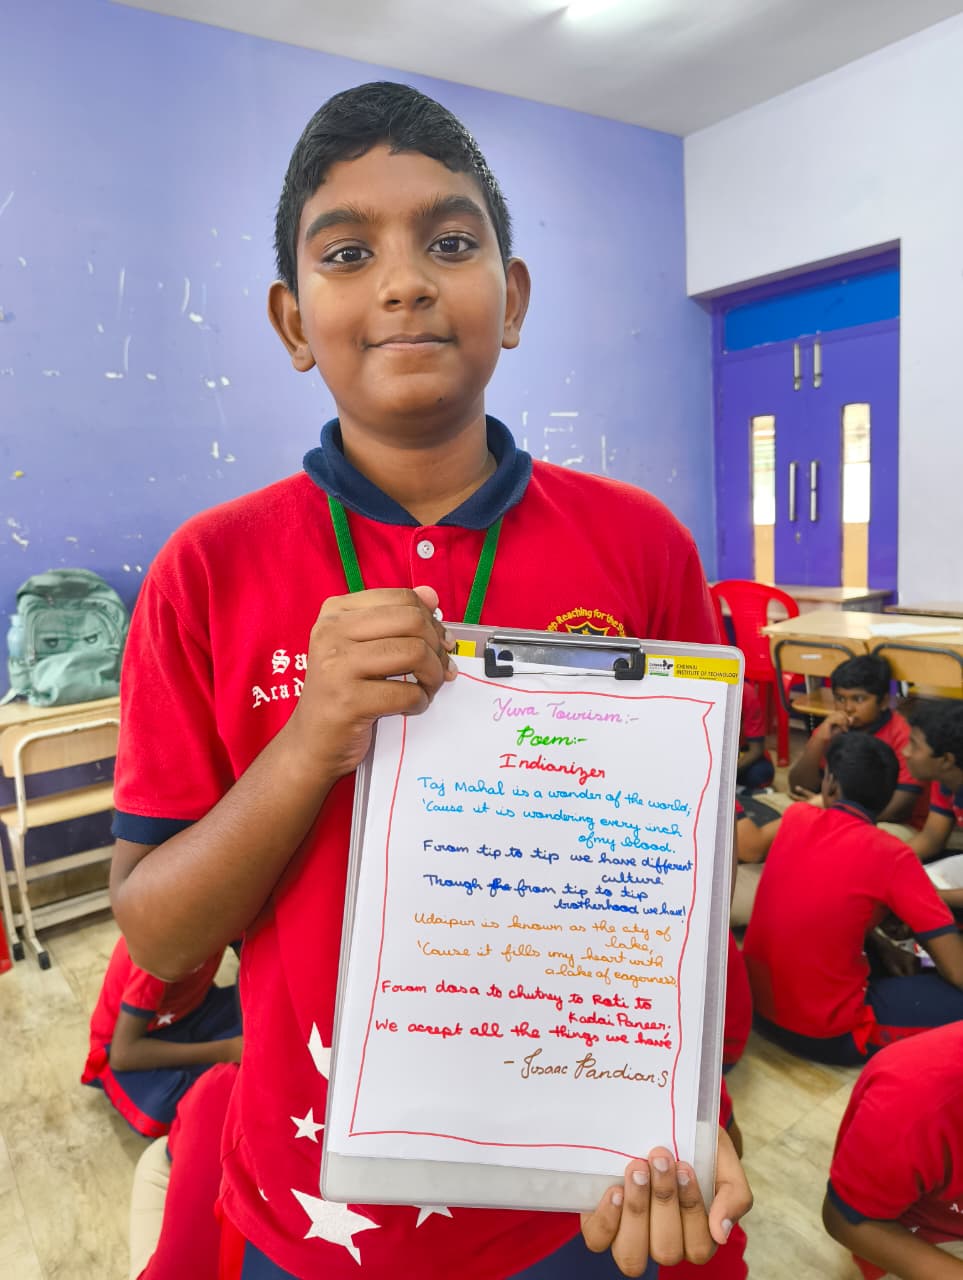 Sa
Acad
Reaching for the S
CHENNAI
INSTITUTE OF TECHNOLOGY
Yuva Tourism:-
Poem:-
Indianizer
Taj Mahal is a wonder of the world;
'Cause it is wondering every inch
of my blood.
From tip to tip we have different
culture
Though from tip to tip
brotherhood we have!
Udaipur is known as the city of
lake,
'Cause it fills my heart with
a lake of eagerness,
From dosa to chutney to Roti to
Kadai Paneer.
We accept all the things we have
- Issac Pandian.S